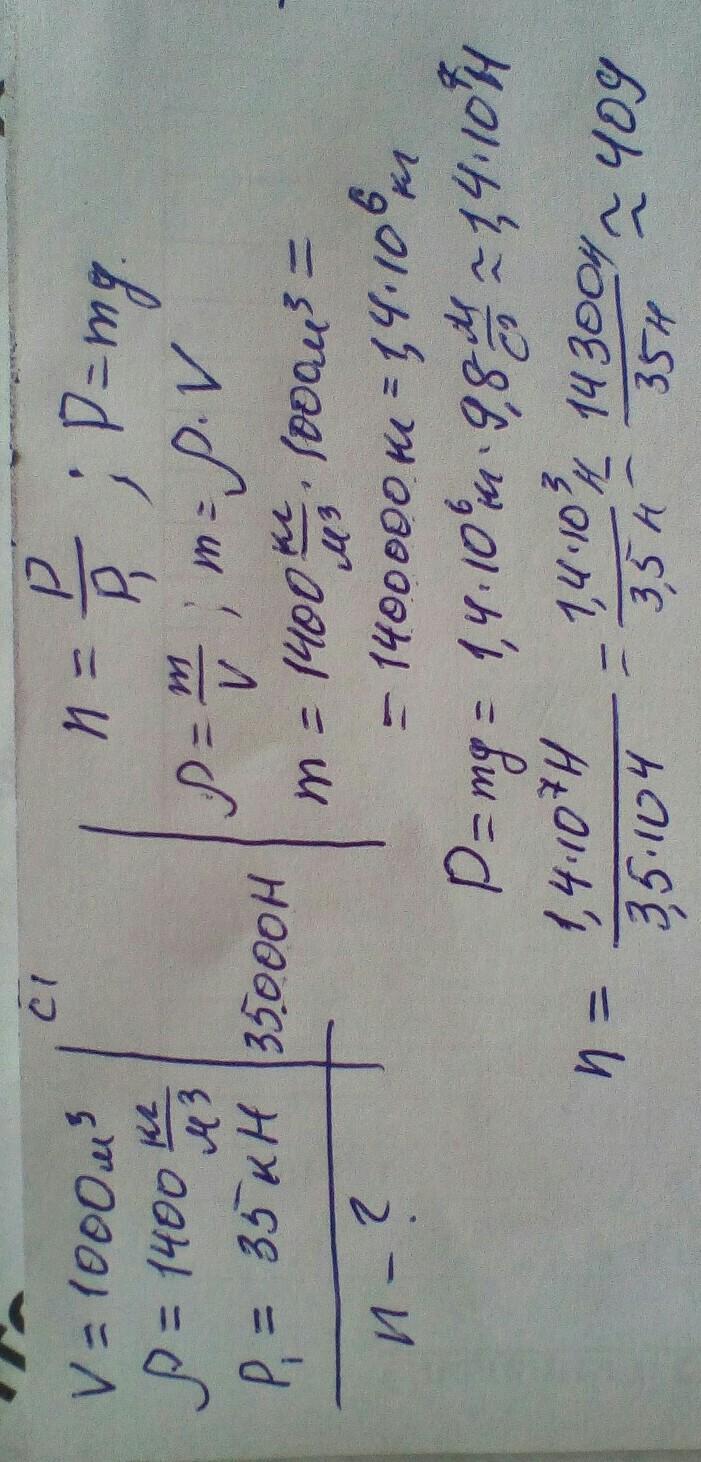 СІ
V = 1000 м³
ρ = 1400 кг/м³
P₁ = 35 кН | 35000Н
n - ?
n = P/P₁ ; P = mg.
ρ = m/V ; m = ρ · V
m = 1400 кг/м³ · 1000 м³ =
= 1400000 кг = 1,4·10⁶ кг
P = mg = 1,4·10⁶ кг · 9,8 м/с² ≈ 1,4·10⁷ Н
n = 1,4·10⁷Н/3,5·104 = 1,4·10³ Н/3,5 Н = 14300Н/35Н ≈ 409